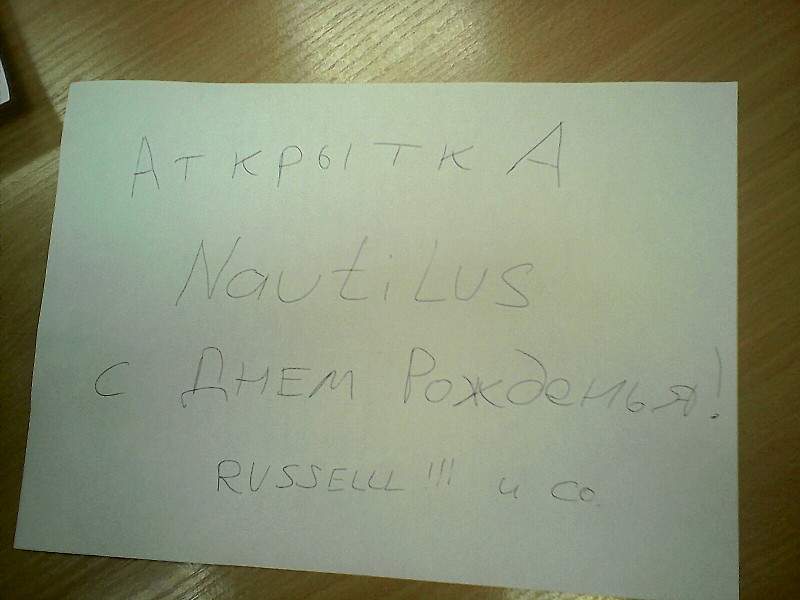 АткрыткА
NautiLus
с Днем Рожденья!
RUSSELLL!!! и co.